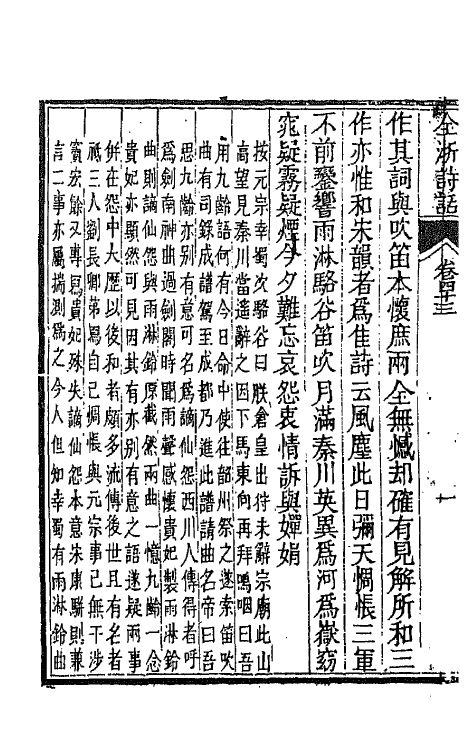 全浙詩話
卷四十三
十
作其詞與吹笛本懷庶兩全無憾却確有見解所和三
作亦惟和朱韻者爲佳詩云風塵此日彌天惆悵三軍
不前鑿響雨淋駱谷笛吹月滿秦川英異爲河爲嶽窈
窕疑霧疑煙今夕難忘哀怨衷情訴與嬋娟
按元宗幸蜀次駱谷曰朕倉皇出狩未辭宗廟此山
高望見秦川當遥辭之因下馬東向再拜嗚咽曰吾
用九齡語何有今日命中使往韶州祭之遂索笛吹
曲有司錄成譜駕至成都乃進此譜請曲名帝曰吾
思九齡亦别有意可名爲謫仙怨西川人傳得者呼
爲劍南神曲過劍閣時聞雨聲感懷貴妃製雨淋鈴
曲則謫仙怨與雨淋鈴原截然兩曲一憶九齡一念
貴妃亦顯然可見因其有亦别有意之語遂疑兩事
併在怨中大歷以後和者頗多流傳後世且有名者
祗三人劉長卿第寫自己惆悵與元宗事已無干涉
竇宏餘又專寫貴妃殊失謫仙怨本意朱康驕則兼
言二事亦屬揣測爲之今人但知幸蜀有雨淋鈴曲